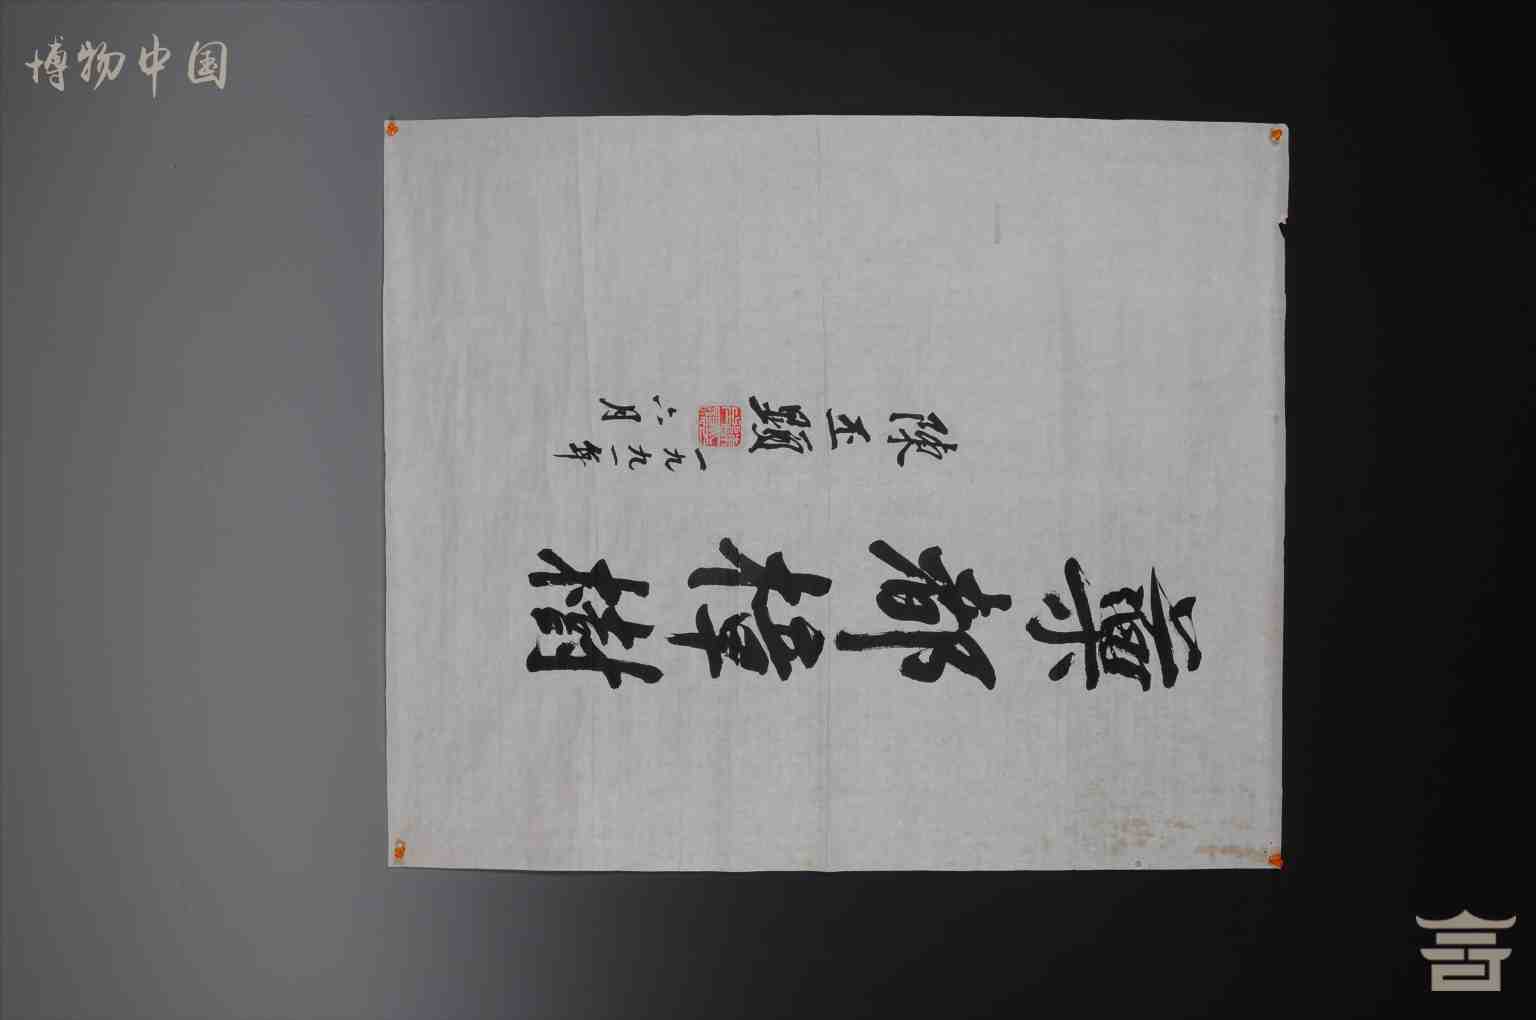 博物中国
藥都樟樹
陳丕顯
一九九一年
六月